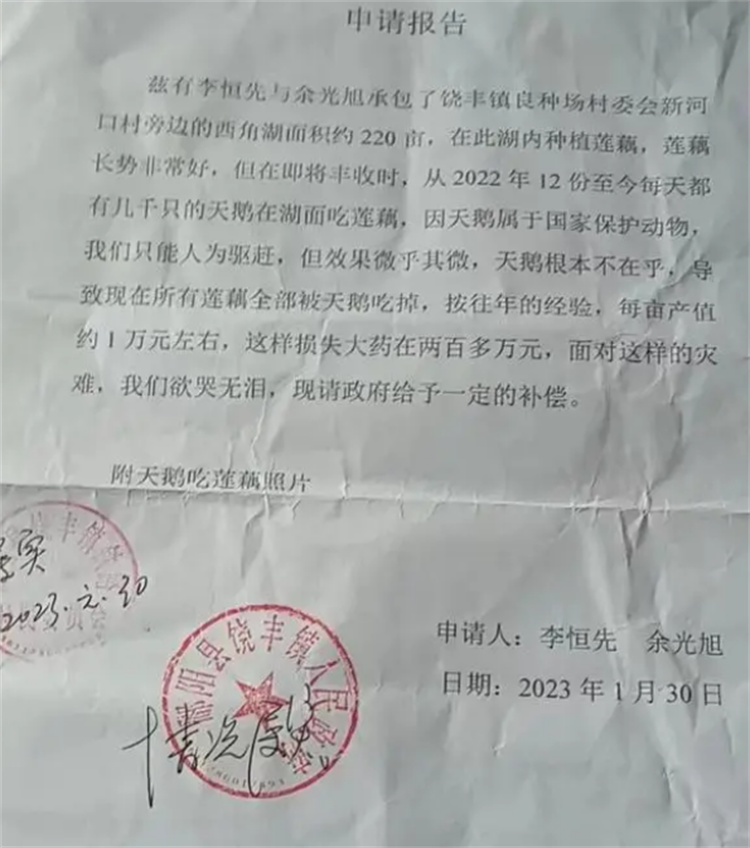 申请报告
兹有李恒先与余光旭承包了饶丰镇良种场村委会新河
口村旁边的西角湖面积约 220 亩，在此湖内种植莲藕，莲藕
长势非常好，但在即将丰收时，从 2022 年 12 份至今每天都
有几千只的天鹅在湖面吃莲藕，因天鹅属于国家保护动物，
我们只能人为驱赶，但效果微乎其微，天鹅根本不在乎，导
致现在所有莲藕全部被天鹅吃掉，按往年的经验，每亩产值
约 1 万元左右，这样损失大药在两百多万元，面对这样的灾
难，我们欲哭无泪，现请政府给予一定的补偿。
附天鹅吃莲藕照片
实
2023.元.30
饶丰镇
委员会
阳县饶丰镇人民政府
情况
申请人：李恒先 余光旭
日期：2023 年 1 月 30 日